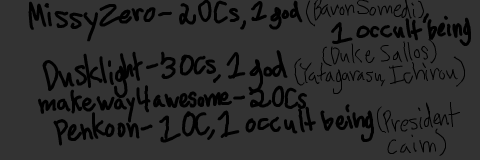 MissyZero- 2OCs, 1 god (Baron Somedi),
1 occult being
(Duke Sallos)
Dusklight- 3OCs, 1 god (Yatagarasu, Ichirou)
makeway4awesome- 2OCs
Penkoon- 1OC, 1 occult being (President
Caim)